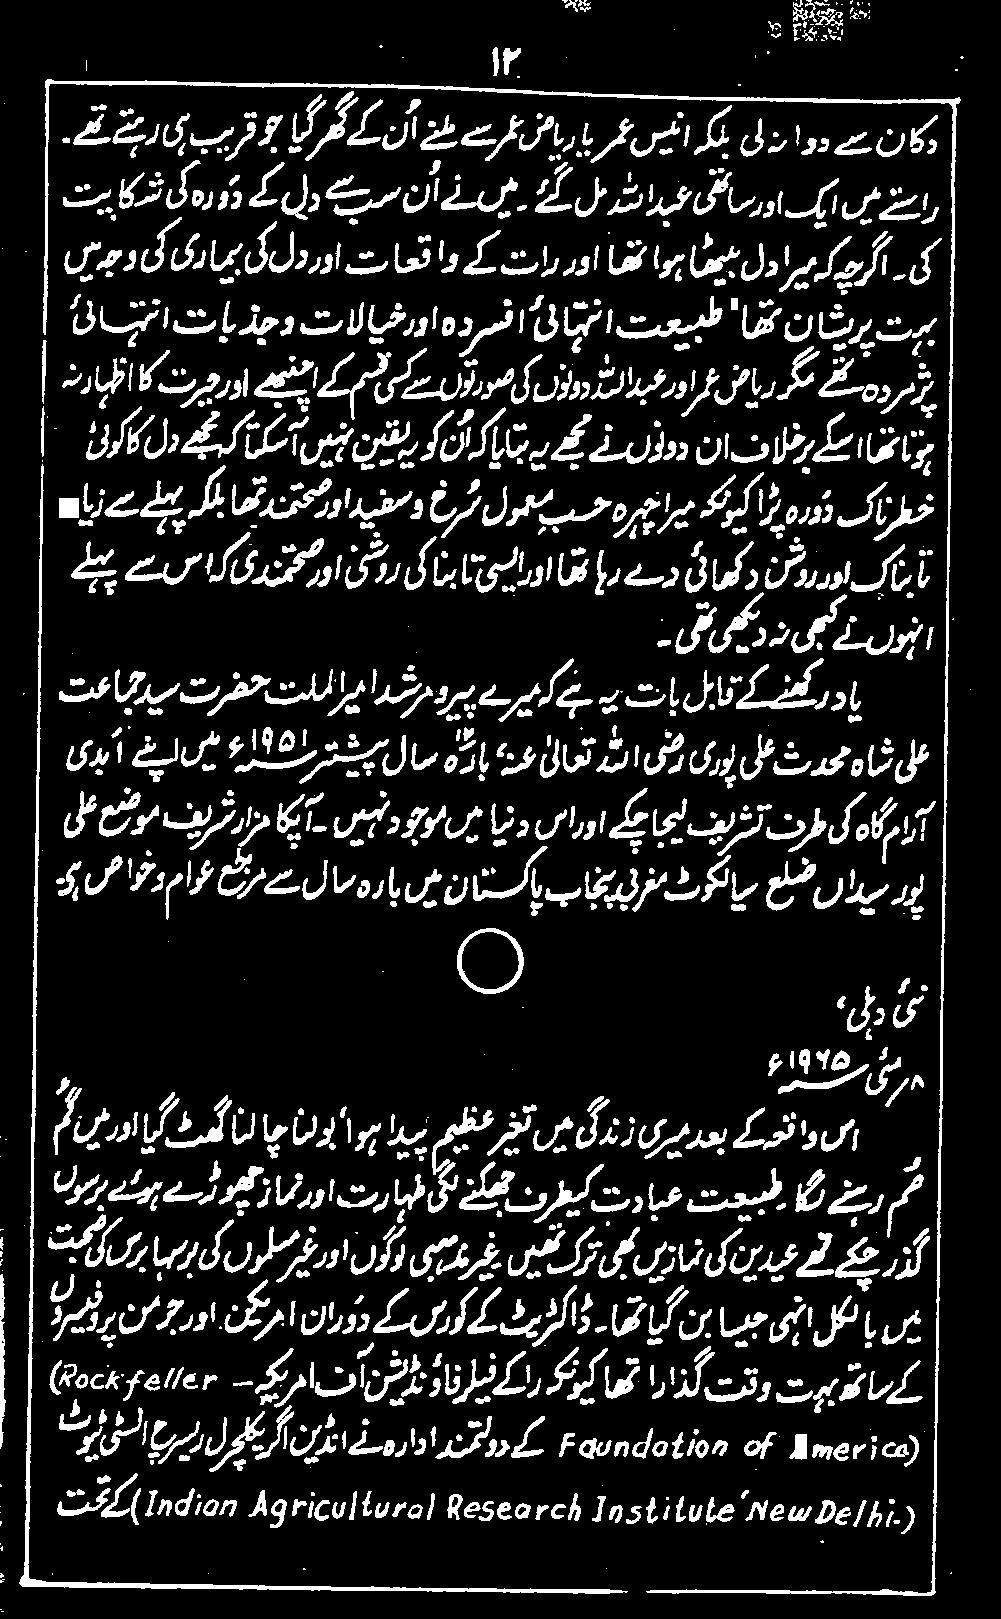 ۱۲
دکان سے دوا نہ لی بلکہ انیس عمر یا ریاض عمر سے ملنے اُن کے گھر گیا جو قریب ہی رہتے تھے۔
راستے میں ایک اور ساتھی عبداللہ مل گئے۔ میں نے اُن سب سے دل کے دَورہ کی شکایت
کی۔ اگرچہ کہ میرا دل بیٹھا ہوا تھا اور رات کے واقعات اور دل کی بیماری کی وجہ میں
بہت پریشان تھا' طبیعت انتہائی افسردہ اور خیالات و جذبات انتہائی
پژمردہ تھے مگر ریاض عمر اور عبداللہ دونوں کی صورتوں سے کسی قسم کے اچنبھے اور حیرت کا اظہار نہ
ہوتا تھا اسکے برخلاف ان دونوں نے مجھے یہ بتایا کہ اُن کو یہ یقین نہیں آسکتا کہ مجھے دل کا کوئی
خطرناک دَورہ پڑا کیونکہ میرا چہرہ حسبِ معمول سُرخ و سفید اور صحتمند تھا بلکہ پہلے سے زیا
تابناک اور روشن دکھائی دے رہا تھا اور ایسی تابناکی روشنی اور صحتمندی کہ اس سے پہلے
انہوں نے کبھی نہ دیکھی تھی۔
یاد رکھنے کے قابل بات یہ ہے کہ میرے پیر و مرشد امیر الملت حضرت سید جماعت
علی شاہ محدث علی پوری رضی اللہ تعالیٰ عنہ' بارہ ۱۲ سال پیشتر ۱۹۵۱ء میں اپنے اَبدی
آرام گاہ کی طرف تشریف لیجاچکے اور اس دنیا میں موجود نہیں۔ آپکا مزار شریف موضع علی
پور سیداں ضلع سیالکوٹ مغربی پنجاب پاکستان میں بارہ سال سے مرجع عوام و خواص ہے۔
نئی دہلی'
۸ مئی ۱۹۶۵ء
اس واقعہ کے بعد میری زندگی میں تغیرِ عظیم پیدا ہوا' بولنا چالنا گھٹ گیا اور میں گُم
صُم رہنے لگا۔ طبیعت عبادت کیطرف جھکنے لگی طہارت اور نماز چھوڑے ہوئے برسوں
گذر چکے تھے عیدین کی نمازیں بھی ترک تھیں غیر مذہبی لوگوں اور غیر مسلموں کی برسہا برس کی صحبت
میں بالکل انہی جیسا بن گیا تھا۔ ڈاکٹریٹ کے کورس کے دَوران امریکن اور جرمن پروفیسروں
کے ساتھ بہت وقت گذارا تھا کیونکہ راکے فیلر فاؤنڈیشن آف امریکہ – (Rockfeller
Foundation of America) کے دولتمند ادارہ نے انڈین اگریکلچرل ریسرچ انسٹی ٹیوٹ
(Indian Agricultural Research Institute' New Delhi.) کے تحت